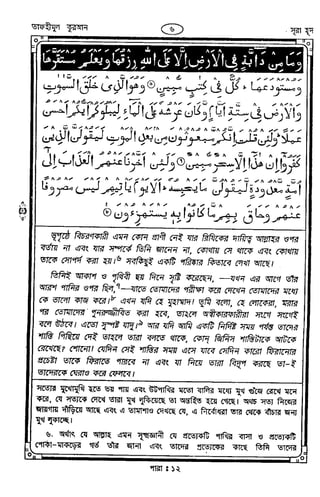 তাফহীমুল কুরআন
৬
সূরা হূদ
وَمَا مِنْ دَآبَّةٍ فِي الْاَرْضِ اِلَّا عَلَى اللّٰهِ رِزْقُهَا وَيَعْلَمُ مُسْتَقَرَّهَا
وَمُسْتَوْدَعَهَا ۚ كُلٌّ فِيْ كِتٰبٍ مُّبِيْنٍ ۞ وَهُوَ الَّذِيْ خَلَقَ السَّمٰوٰتِ
وَالْاَرْضَ فِيْ سِتَّةِ اَيَّامٍ وَّكَانَ عَرْشُهٗ عَلَى الْمَآءِ لِيَبْلُوَكُمْ اَيُّكُمْ اَحْسَنُ
عَمَلًا ۚ وَلَئِنْ قُلْتَ اِنَّكُمْ مَّبْعُوْثُوْنَ مِنْۢ بَعْدِ الْمَوْتِ لَيَقُوْلَنَّ الَّذِيْنَ
كَفَرُوْٓا اِنْ هٰذَآ اِلَّا سِحْرٌ مُّبِيْنٌ ۞ وَلَئِنْ اَخَّرْنَا عَنْهُمُ الْعَذَابَ اِلٰٓى
اُمَّةٍ مَّعْدُوْدَةٍ لَّيَقُوْلُنَّ مَا يَحْبِسُهٗ ؕ اَلَا يَوْمَ يَاْتِيْهِمْ لَيْسَ مَصْرُوْفًا
عَنْهُمْ وَحَاقَ بِهِمْ مَّا كَانُوْا بِهٖ يَسْتَهْزِءُوْنَ ۞
ভূপৃষ্ঠে বিচরণকারী এমন কোন প্রাণী নেই যার রিযিকের দায়িত্ব আল্লাহর ওপর
বর্তায় না এবং যার সম্পর্কে তিনি জানেন না, কোথায় সে থাকে এবং কোথায়
তাকে সোপর্দ করা হয়।৬ সবকিছুই একটি পরিষ্কার কিতাবে লেখা আছে।
তিনিই আকাশ ও পৃথিবী ছয় দিনে সৃষ্টি করেছেন,—যখন এর আগে তাঁর
আরশ পানির ওপর ছিল,৭—যাতে তোমাদের পরীক্ষা করে দেখেন তোমাদের মধ্যে
কে ভালো কাজ করে।৮ এখন যদি হে মুহাম্মদ! তুমি বলো, হে লোকেরা, মরার
পর তোমাদের পুনরুজ্জীবিত করা হবে, তাহলে অস্বীকারকারীরা সংগে সংগেই
বলে উঠবে। এতো সুস্পষ্ট যাদু।৯ আর যদি আমি একটি নির্দিষ্ট সময় পর্যন্ত তাদের
শাস্তি পিছিয়ে দেই তাহলে তারা বলতে থাকে, কোন্ জিনিস শাস্তিটাকে আটকে
রেখেছে? শোনো! যেদিন সেই শাস্তির সময় এসে যাবে সেদিন কারো ফিরানোর
প্রচেষ্টা তাকে ফিরাতে পারবে না এবং যা নিয়ে তারা বিদ্রূপ করছে তা-ই
তাদেরকে ঘেরাও করে ফেলবে।
সত্যের মুখোমুখি হতে ভয় পায় এবং উটপাখির মতো বালির মধ্যে মুখ গুঁজে রেখে মনে
করে, যে সত্যকে দেখে তারা মুখ লুকিয়েছে তা অন্তর্হিত হয়ে গেছে। অথচ সত্য নিজের
জায়গায় দাঁড়িয়ে আছে এবং এ তামাশাও দেখছে যে, এ নির্বোধরা তার থেকে বাঁচার জন্য
মুখ লুকাচ্ছে।
৬. অর্থাৎ যে আল্লাহ এমন সূক্ষ্মজ্ঞানী যে প্রত্যেকটি পাখির বাসা ও প্রত্যেকটি
পোকা-মাকড়ের গর্ত তাঁর জানা এবং তাদের প্রত্যেকের কাছে তিনি তাদের
পারা : ১২